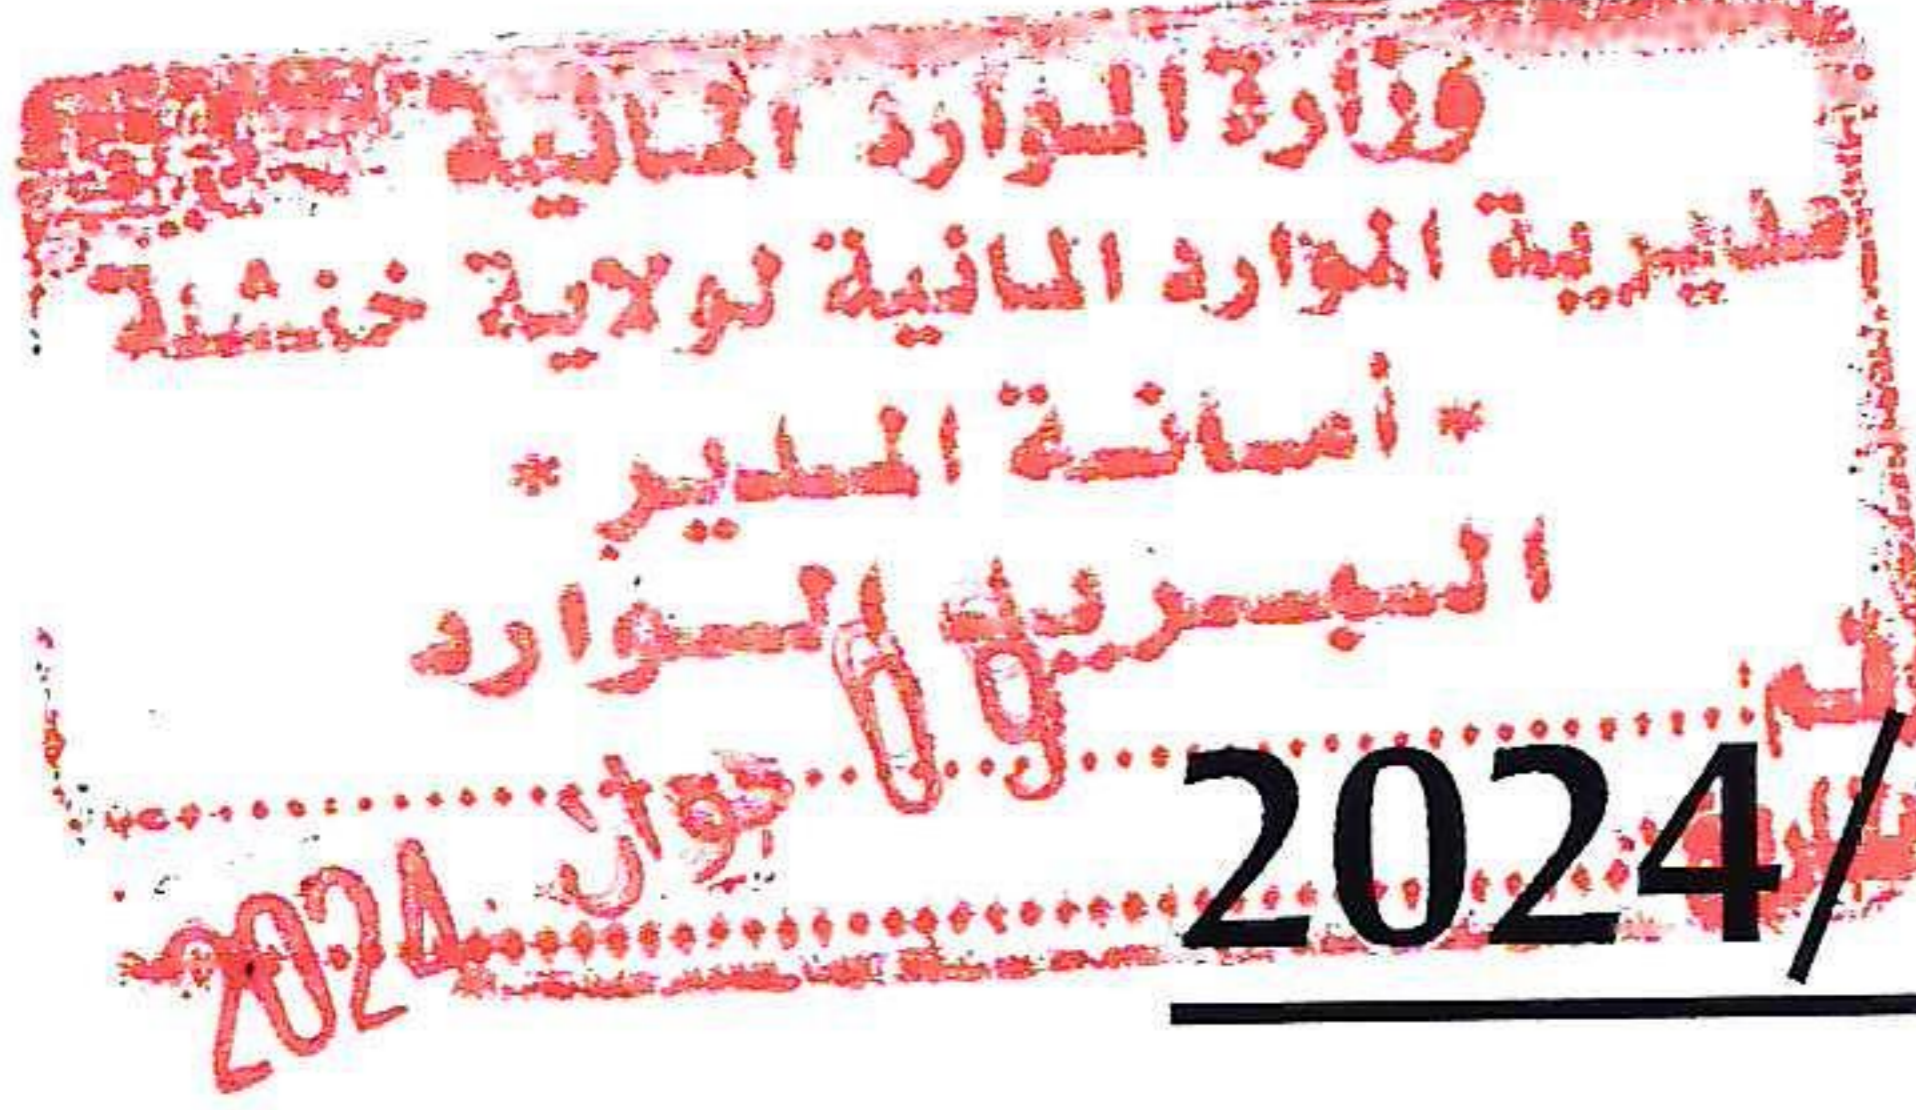 وزارة الموارد المائية
مديرية الموارد المائية لولاية خنشلة
* أمانة المدير *
البريد الوارد
09 جوان 2024
2024/